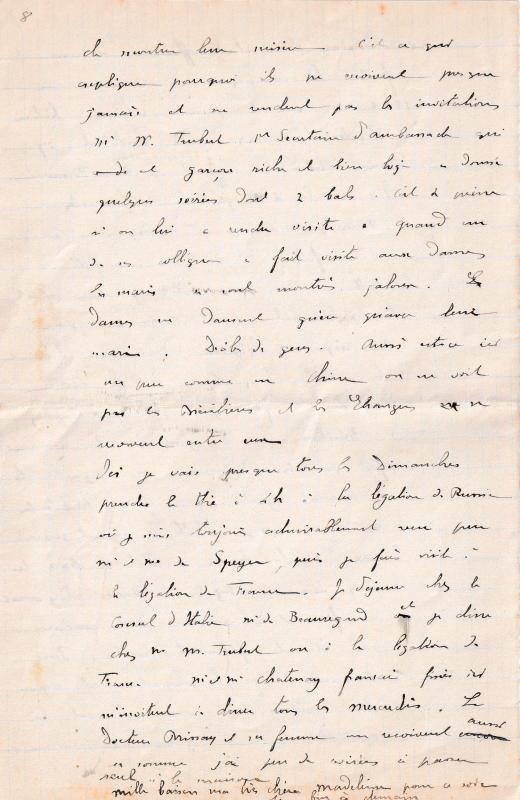 8
de montrer leur misère c'est ce qui
explique pourquoi ils ne reçoivent presque
jamais et ne rendent pas les invitations
Mr W. Trubert 1er Secrétaire d'ambassade qui
est garçon riche et bien logé a donné
quelques soirées dont 2 bals. C'est à peine
si on lui a rendu visite. quand un
de ses collègues a fait visite aux dames
les maris se sont montrés jaloux. Les
dames ne dansent guère qu'avec leurs
maris. Drôles de gens. Aussi est-ce ici
un peu comme en Chine on ne voit
pas les et les Etrangers se
reçoivent entre eux
Ici je vais presque tous les Dimanches
prendre le thé à 4h à la légation de Russie
où je suis toujours admirablement reçu par
Mr et Mme de Speyer, puis je fais visite à
la légation de France. Je déjeune chez le
Consul d'Italie Mr de Beauregard et je dîne
chez Mr Trubert ou à la légation de
France. Mr et Mme Chatenay français ici
m'invitent à dîner tous les mercredis. Le
Docteur et sa femme me reçoivent aussi
en somme j'ai peu de soirées à passer
seul à la maison
mille baisers ma très chère Madeleine pour ce soir
à demain